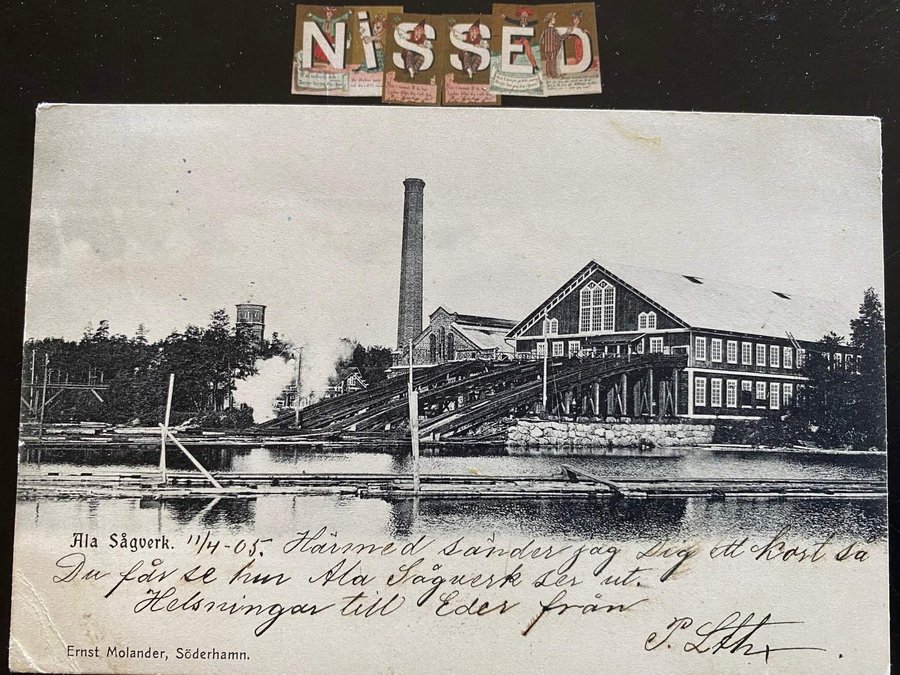 NiSSED
Ala Sågverk. 11/4-05. Härmed sänder jag Dig ett kort så
Du får se hur Ala Sågverk ser ut.
Helsningar till Eder från
P. Lth
Ernst Molander, Söderhamn.